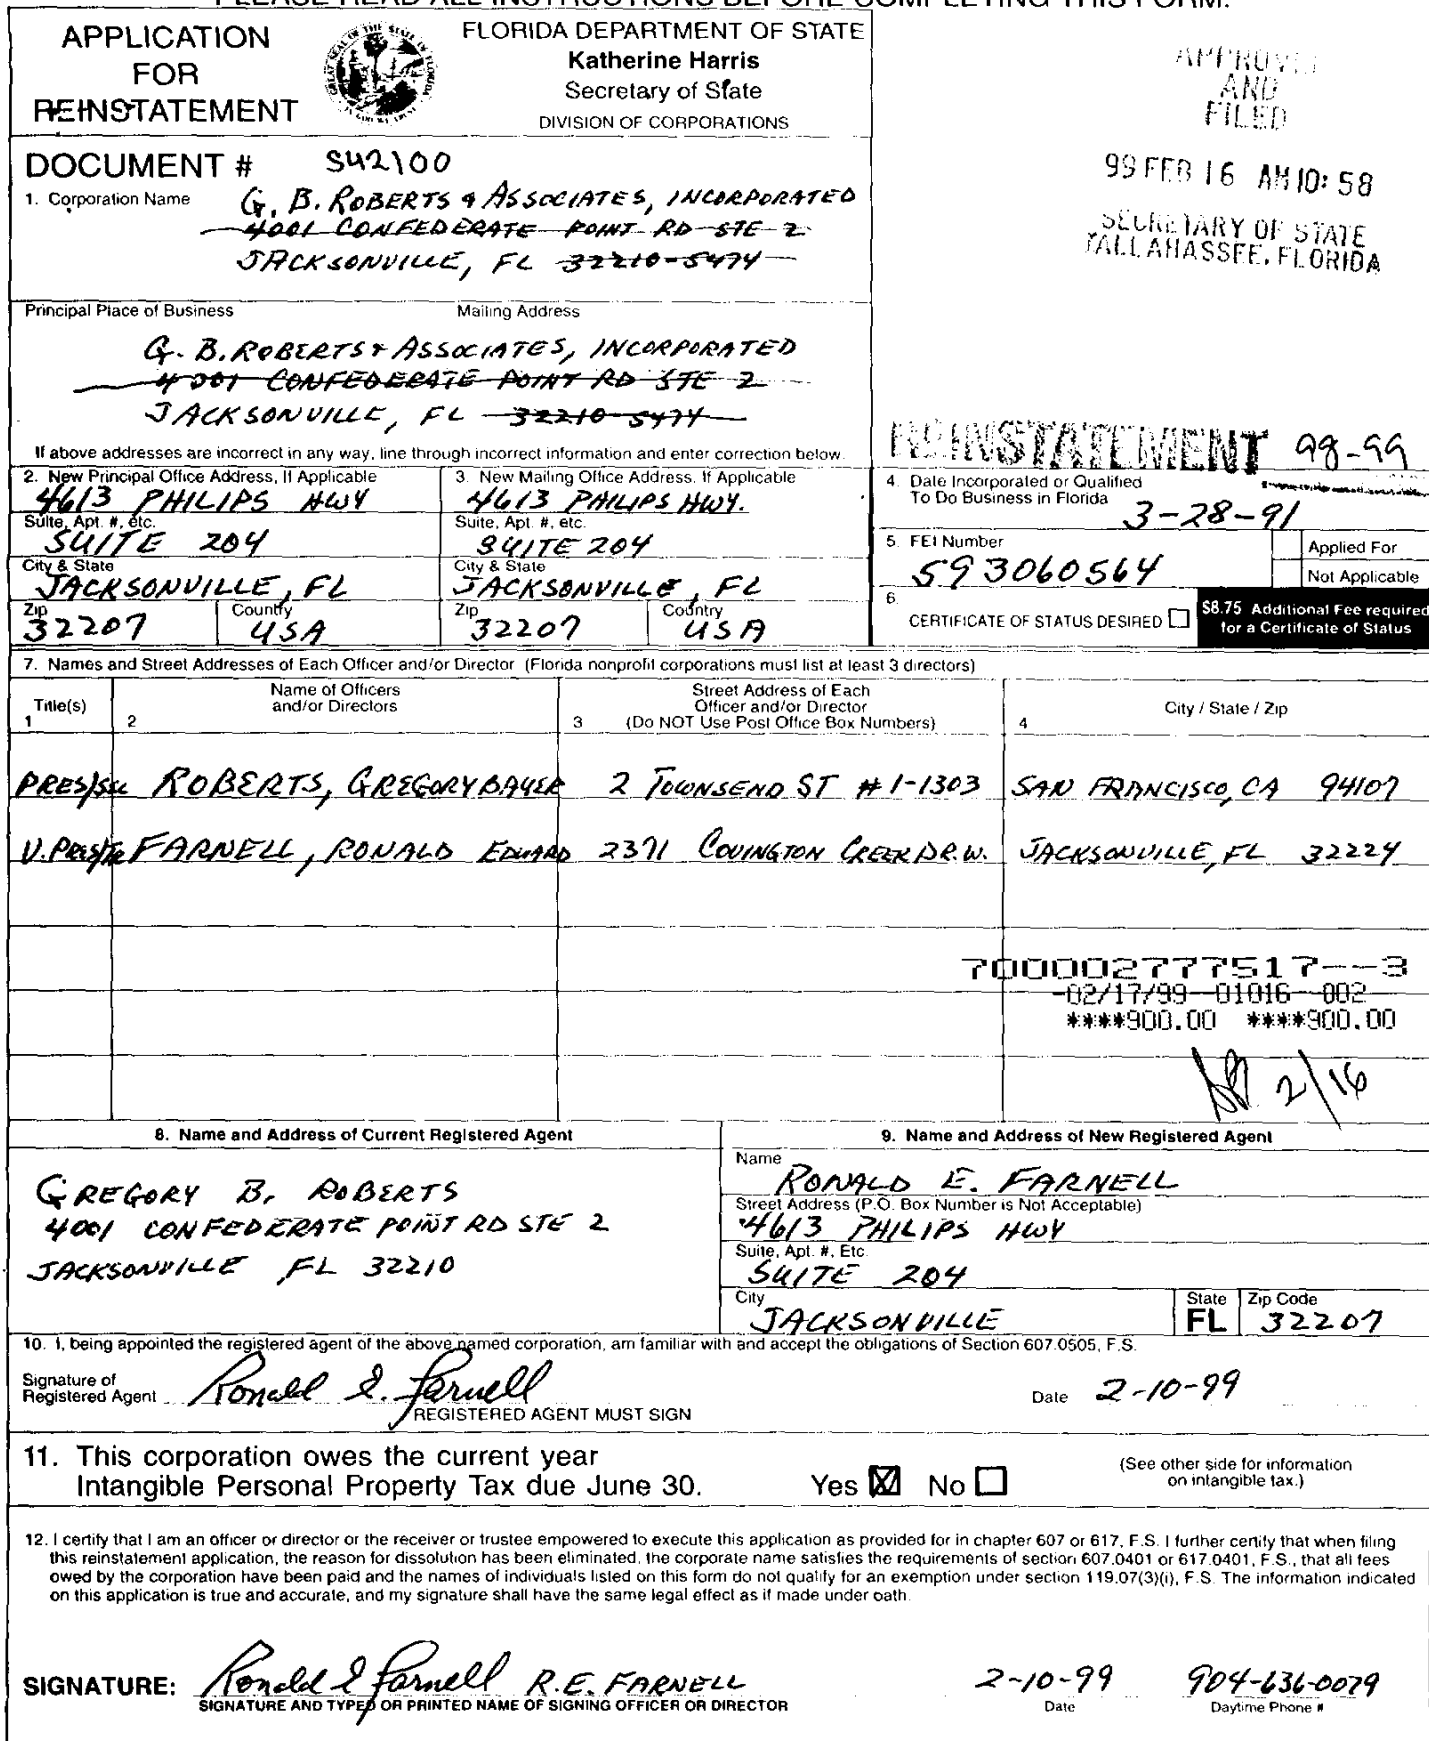 PLEASE READ ALL INSTRUCTIONS BEFORE COMPLETING THIS FORM.
APPLICATION
FOR
REINSTATEMENT
FLORIDA DEPARTMENT OF STATE
Katherine Harris
Secretary of State
DIVISION OF CORPORATIONS
APPROVED
AND
FILED
99 FEB 16 AM 10:58
SECRETARY OF STATE
TALLAHASSEE, FLORIDA
DOCUMENT # S42100
1. Corporation Name
G. B. ROBERTS & ASSOCIATES, INCORPORATED
4001 CONFEDERATE POINT RD STE 2
JACKSONVILLE, FL 32210-5474
Principal Place of Business Mailing Address
G. B. ROBERTS & ASSOCIATES, INCORPORATED
4001 CONFEDERATE POINT RD STE 2
JACKSONVILLE, FL 32210-5474
If above addresses are incorrect in any way, line through incorrect information and enter correction below.
REINSTATEMENT 98-99
2. New Principal Office Address, If Applicable
4613 PHILIPS HWY
Suite, Apt. #, etc.
SUITE 204
City & State
JACKSONVILLE, FL
Zip Country
32207 USA
3. New Mailing Office Address, If Applicable
4613 PHILIPS HWY.
Suite, Apt. #, etc.
SUITE 204
City & State
JACKSONVILLE, FL
Zip Country
32207 USA
4. Date Incorporated or Qualified
To Do Business in Florida
3-28-91
5. FEI Number
593060564
Applied For
Not Applicable
6.
CERTIFICATE OF STATUS DESIRED
$8.75 Additional Fee required
for a Certificate of Status
7. Names and Street Addresses of Each Officer and/or Director (Florida nonprofit corporations must list at least 3 directors)
Title(s)
1
Name of Officers
and/or Directors
2
Street Address of Each
Officer and/or Director
3 (Do NOT Use Post Office Box Numbers)
City / State / Zip
4
PRES/SEC ROBERTS, GREGORY BAUER 2 TOWNSEND ST # 1-1303 SAN FRANCISCO, CA 94107
V. PRES/TR FARNELL, RONALD EDWARD 2371 COVINGTON CREEK DR. W. JACKSONVILLE, FL 32224
700002777517--3
-02/17/99--01016--002
****900.00 ****900.00
2/16
8. Name and Address of Current Registered Agent
GREGORY B. ROBERTS
4001 CONFEDERATE POINT RD STE 2
JACKSONVILLE, FL 32210
9. Name and Address of New Registered Agent
Name
RONALD E. FARNELL
Street Address (P.O. Box Number is Not Acceptable)
4613 PHILIPS HWY
Suite, Apt. #, Etc.
SUITE 204
City State Zip Code
JACKSONVILLE FL 32207
10. I, being appointed the registered agent of the above named corporation, am familiar with and accept the obligations of Section 607.0505, F.S.
Signature of
Registered Agent Ronald E. Farnell Date 2-10-99
REGISTERED AGENT MUST SIGN
11. This corporation owes the current year
Intangible Personal Property Tax due June 30. Yes X No
(See other side for information
on intangible tax.)
12. I certify that I am an officer or director or the receiver or trustee empowered to execute this application as provided for in chapter 607 or 617, F.S. I further certify that when filing
this reinstatement application, the reason for dissolution has been eliminated, the corporate name satisfies the requirements of section 607.0401 or 617.0401, F.S., that all fees
owed by the corporation have been paid and the names of individuals listed on this form do not qualify for an exemption under section 119.07(3)(i), F.S. The information indicated
on this application is true and accurate, and my signature shall have the same legal effect as if made under oath.
SIGNATURE: Ronald E Farnell R.E. FARNELL 2-10-99 904-636-0079
SIGNATURE AND TYPED OR PRINTED NAME OF SIGNING OFFICER OR DIRECTOR Date Daytime Phone #